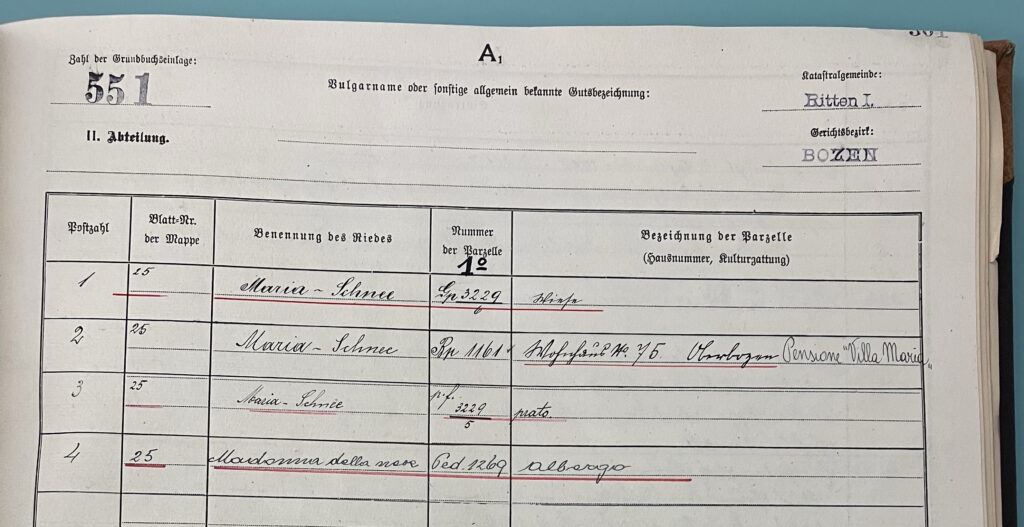 301
A1
Zahl der Grundbuchseinlage:
551
Vulgarname oder sonstige allgemein bekannte Gutsbezeichnung:
Katastralgemeinde:
Ritten I.
II. Abteilung.
Gerichtsbezirk:
BOZEN
Postzahl
Blatt-Nr. der Mappe
Benennung des Riedes
Nummer der Parzelle
1º
Bezeichnung der Parzelle
(Hausnummer, Kulturgattung)
1 25 Maria-Schnee Gp 3229/6 Wiese
2 25 Maria-Schnee Bp 1161 Wohnhaus No. 75 Oberbozen Pensione "Villa Maria"
3 25 Maria-Schnee p.f. 3229/5 prato.
4 25 Madonna della neve P.ed. 1269 albergo